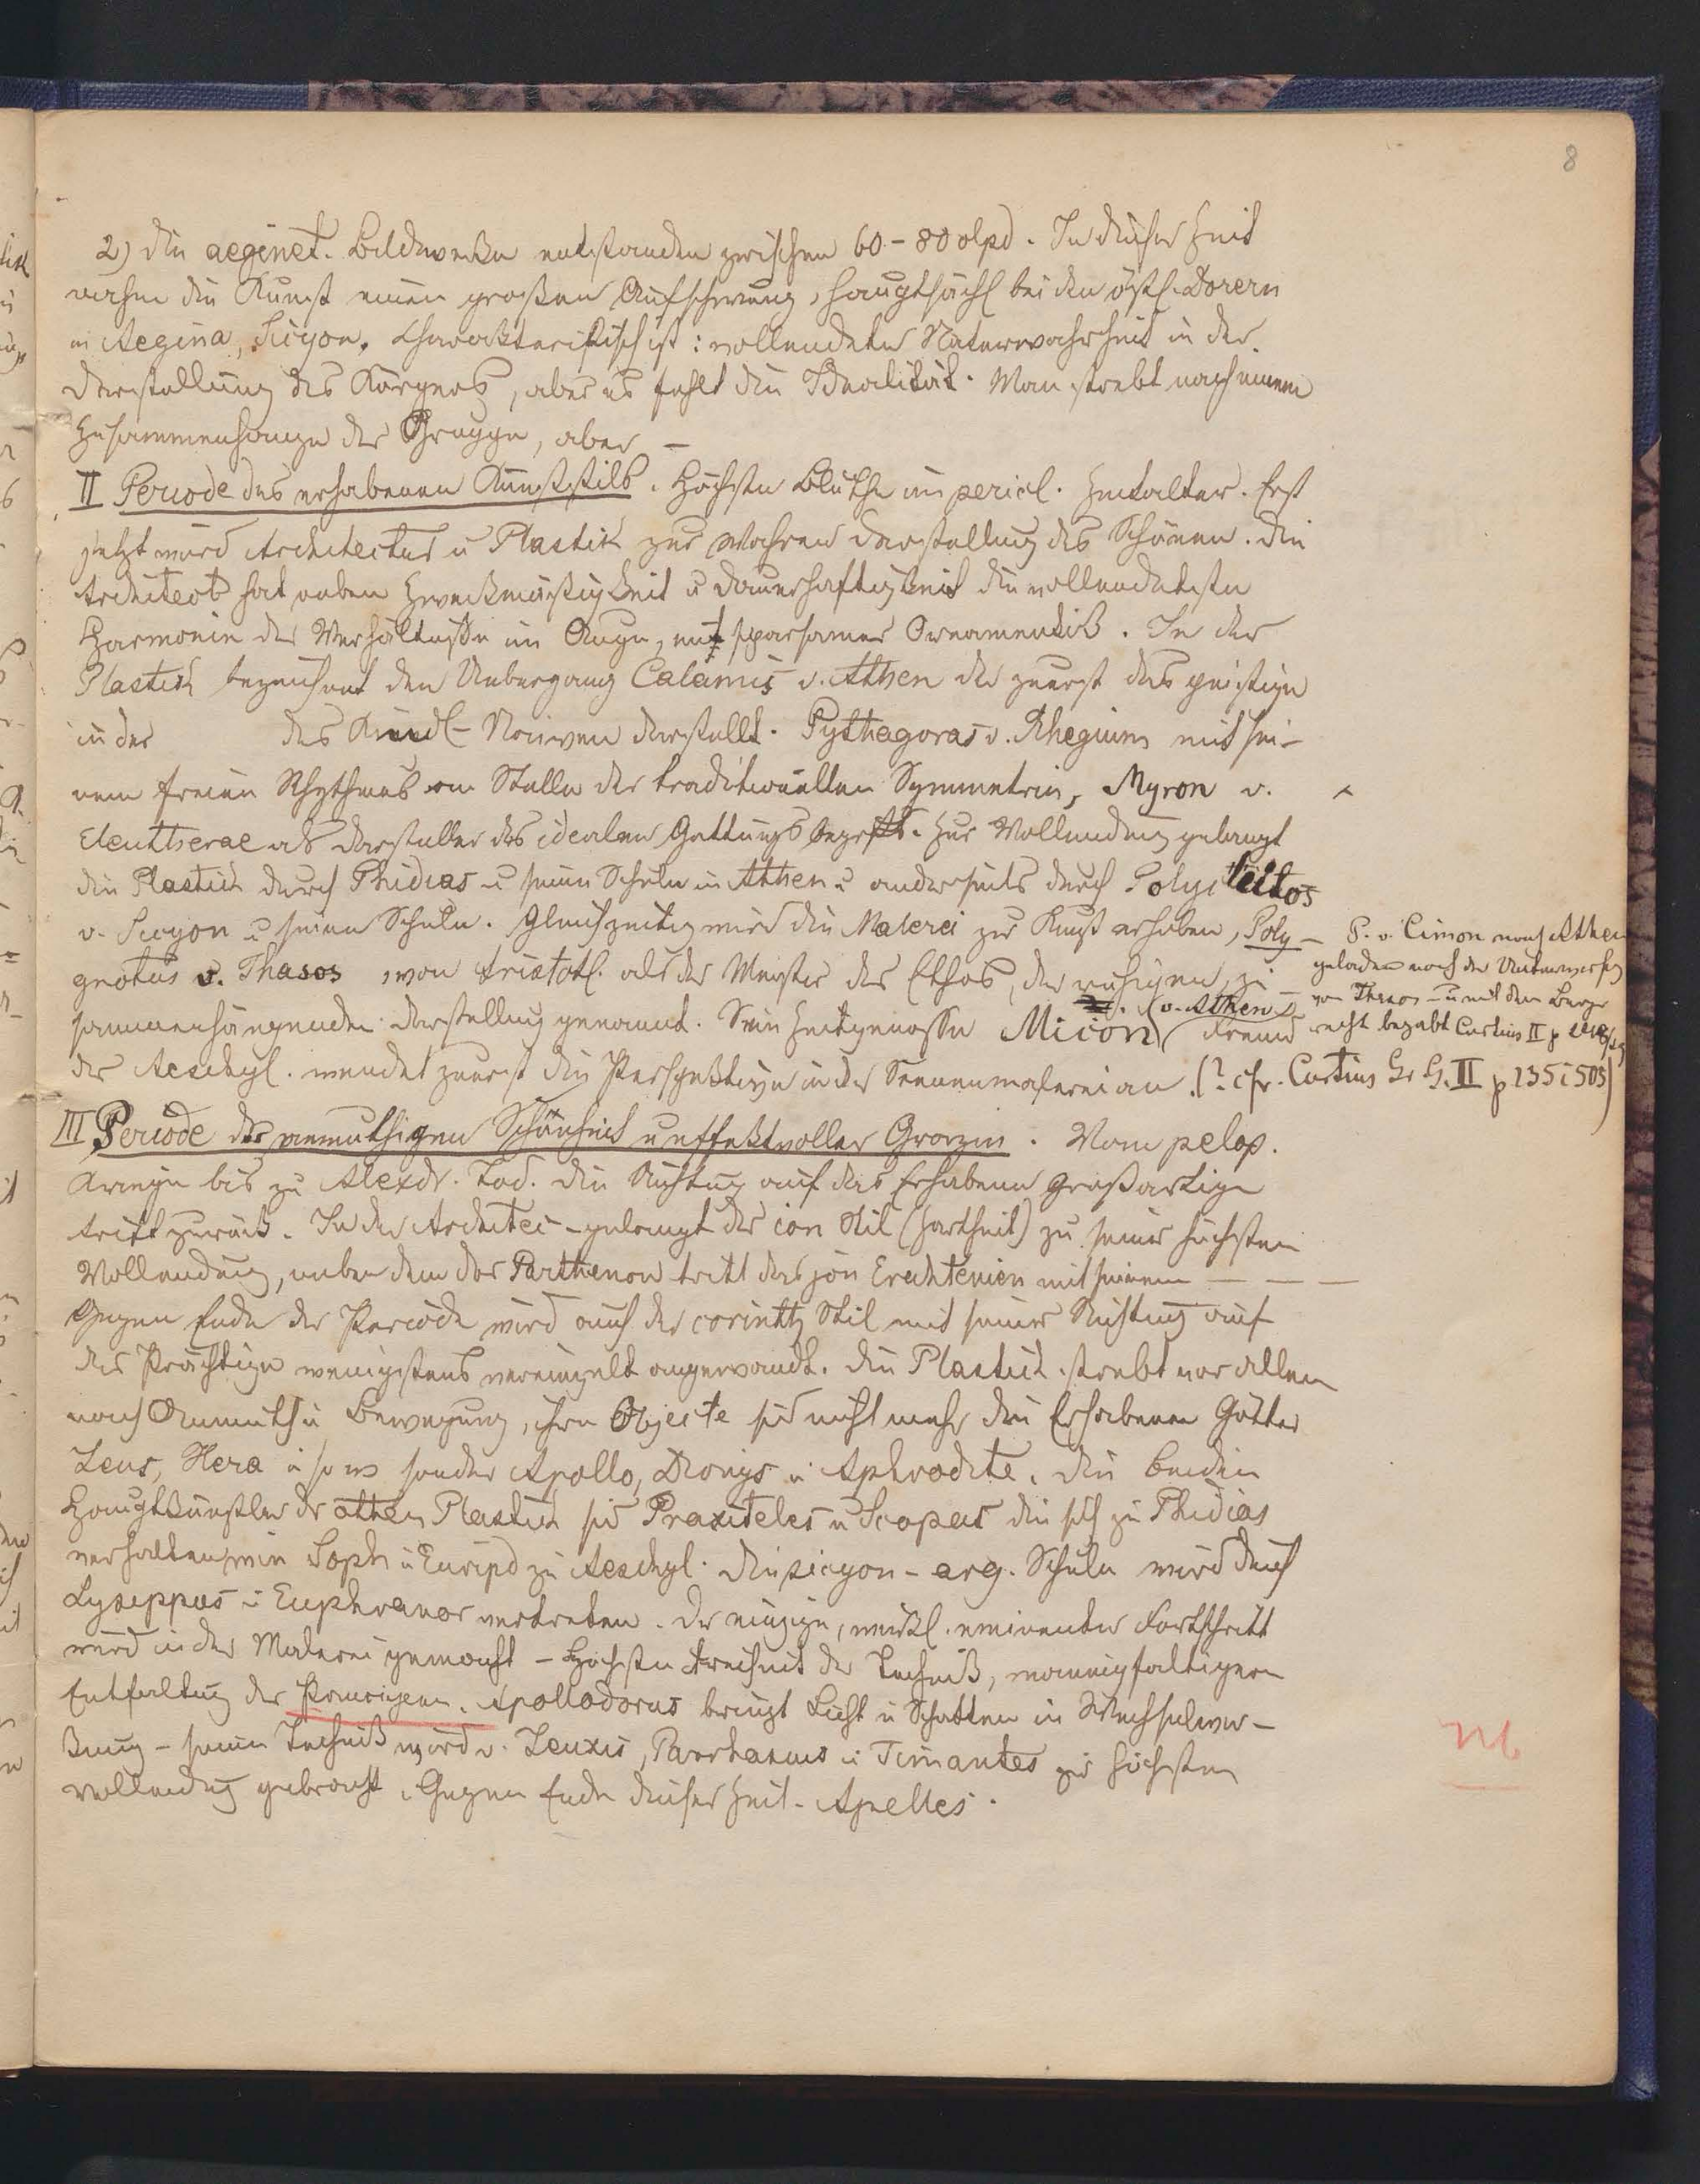 8
2) Die aeginet. Bildwerke entstanden zwischen 60 - 80 olpd. In dieser Zeit
nahm die Kunst einen großen Aufschwung, hauptsächl bei den östl. Dorern
in Aegina, Sicyon. Charakteristisch ist: vollendete Naturwahrheit in der
Darstellung des Körpers, aber es fehlt die Idealität. Man strebt nach einem
Zusammenhange der Gruppe, aber –
II Periode des erhabenen Kunststils. Höchste Blüthe im pericl. Zeitalter. Erst
jetzt wird Architectur u Plastik zur wahren Darstellung des Schönen. Die
Architect hat neben Zweckmäßigkeit u Dauerhaftigkeit die vollendetste
Harmonie der Verhältnisse im Auge, mit sparsamer Ornamentik. In der
Plastik bezeichnet den Uebergang Calamis v. Athen der zuerst das geistige
in der des Kindl-Naiven darstellt. Pythagoras v. Rhegium mit sei-
nem freien Rhythmus an Stelle der traditionellen Symmetrie, Myron v.
Eleutherae als Darsteller des idealen Gattungsbegriffs. Zur Vollendung gelangt
die Plastik durch Phidias u seine Schule in Athen u anderseits durch Polycleitos
v. Sicyon u seine Schule. Gleichzeitig wird die Malerei zur Kunst erhoben, Poly-
gnotus v. Thasos, von Aristotl. als der Meister des Ethos, der ruhigen, zu-
sammenhängenden Darstellung genannt. Sein Zeitgenosse Micon (v. Athen) Freund
des Aeschyl. wendet zuerst die Perspektive in der Scenenmalerei an. (? cfr. Curtius Gr. G. II p 235 i 503)
P. v. Cimon nach Athen
geladen nach der Unterwerfung
von Thasos – u mit dem Bürger
recht begabt Curtius II p
III Periode der anmuthigen Schönheit u effektvoller Grazie. Vom pelop.
Kriege bis zu Alexdr. Tod. Die Richtung auf das Erhabene Großartige
tritt zurück. In der Architec - gelangt der ion Stil (Zartheit) zu seiner höchsten
Vollendung, neben dem dor Parthenon tritt das jon Erechteion mit seinem — — —
Gegen Ende der Periode wird auch der corinth Stil mit seiner Richtung auf
das Prächtige wenigstens vereinzelt angewandt. Die Plastik strebt vor Allem
nach Anmuth u Bewegung, ihre Objecte sind nicht mehr die Erhabenen Götter
Zeus, Hera u s w sondern Apollo, Dionys u Aphrodite. Die beiden
Hauptkünstler der athen Plastik sind Praxiteles u Scopas die sich zu Phidias
verhalten wie Soph u Euripd zu Aeschyl. Die sicyon - arg. Schule wird durch
Lysippus u Euphranor vertreten. Der einzige, wirkl. eminente Fortschritt
wird in der Malerei gemacht – Höchste Freiheit der Technik, mannigfaltigere
Entfaltung der Principien. Apollodorus bringt Licht u Schatten in Wechselwir-
kung – seine Technik wird v. Zeuxis, Parrhasius u Timantes zur höchsten
Vollendung gebracht. Gegen Ende dieser Zeit - Apelles.
Nb